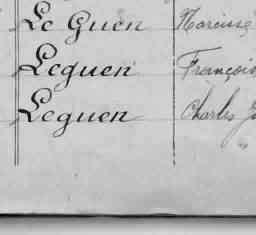 Le Guen Narcisse
Leguen François
Leguen Charles